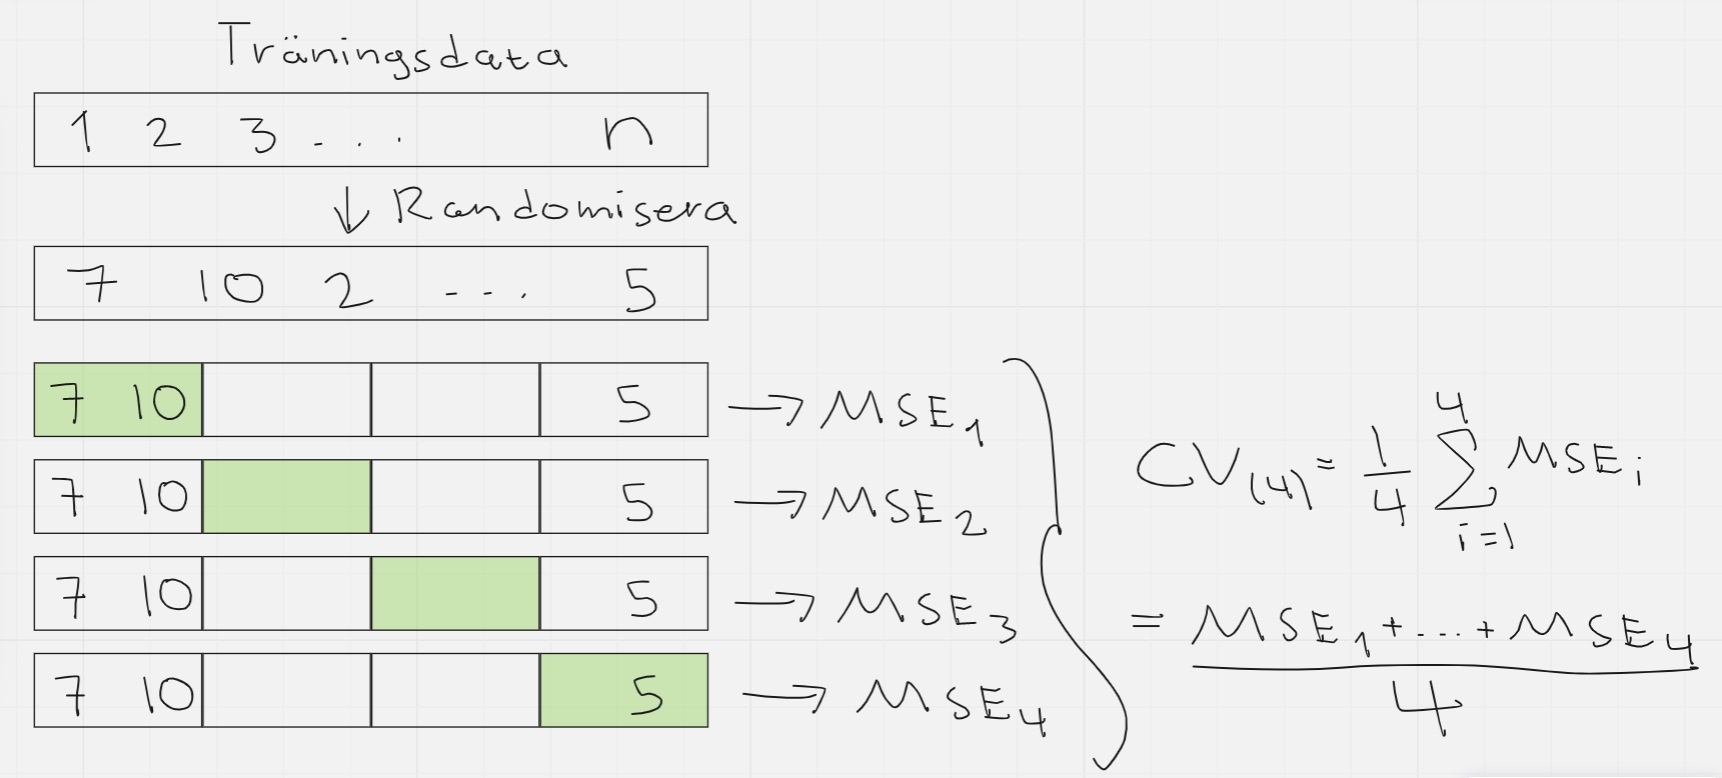 Träningsdata
1 2 3 ... n
↓ Randomisera
7 10 2 ... 5
7 10 5 → MSE₁
7 10 5 → MSE₂
7 10 5 → MSE₃
7 10 5 → MSE₄
CV₍₄₎ = 1/4 ∑_{i=1}^{4} MSEᵢ
= (MSE₁ + ... + MSE₄)/4